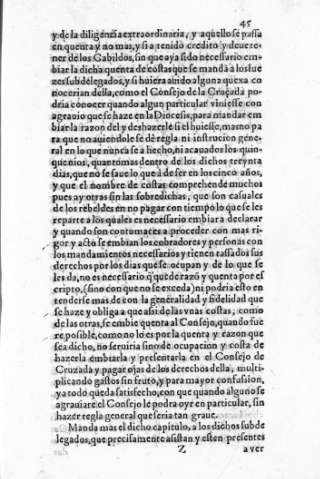 45
y de la diligencia extraordinaria, y aquello se passa
en quenta y no mas, y si a tenido credito y deue te-
ner de los Cabildos, sin que aya sido necessario em-
biar la dicha quenta de costas que se manda a los Iue
zes subdelegados, y si huiera auido alguna quexa co
nocerian della, como el Consejo de la Cruçada po-
dria conocer quando algun particular viniesse con
agrauio que se haze en la Diocesis, para mandar em
biar la razon del y deshazerle si el huiesse, mas no pa
ra que no auiendole se dè regla ni instrucion gene-
ral en lo que nunca se a hecho, ni acauados los quin-
quenios, quanto mas dentro de los dichos treynta
dias, que no se saue lo que à de ser en los cinco años,
y que el nombre de costas comprehende muchos
pues ay otras sin las sobredichas, que son casuales
de los rebeldes en no pagar con tiempo lo que se les
reparte a los quales es necessario embiar a declarar
y quando son contumaces a proceder con mas ri-
gor y a esto se embian los cobradores y personas con
los mandamientos necessarios y tienen tassados sus
derechos por los dias que se ocupan y de lo que se
les da, no es necessario q̃ quede razõ y quenta por es
cripto, (sino con que no se exceda) ni podria esto en
tenderse mas de con la generalidad y fidelidad que
se haze y obliga a que assi de las vnas costas, como
de las otras, se embie quenta al Consejo, quando fue
re posible, como no lo es por la quenta y razon que
sea dicho, no seruiria sino de ocupacion y costa de
hazerla embiarla y presentarla en el Consejo de
Cruzada y pagar ojas de los derechos della, multi-
plicando gastos sin fruto, y para mayor confusion,
ya todo queda satisfecho, con que quando alguno se
agrauiare el Consejo le podra oyr en particular, sin
hazer regla general que seria tan graue.
Manda mas el dicho capitulo, a los dichos subde
legados, que precisamente asistan y esten presentes
Z a ver